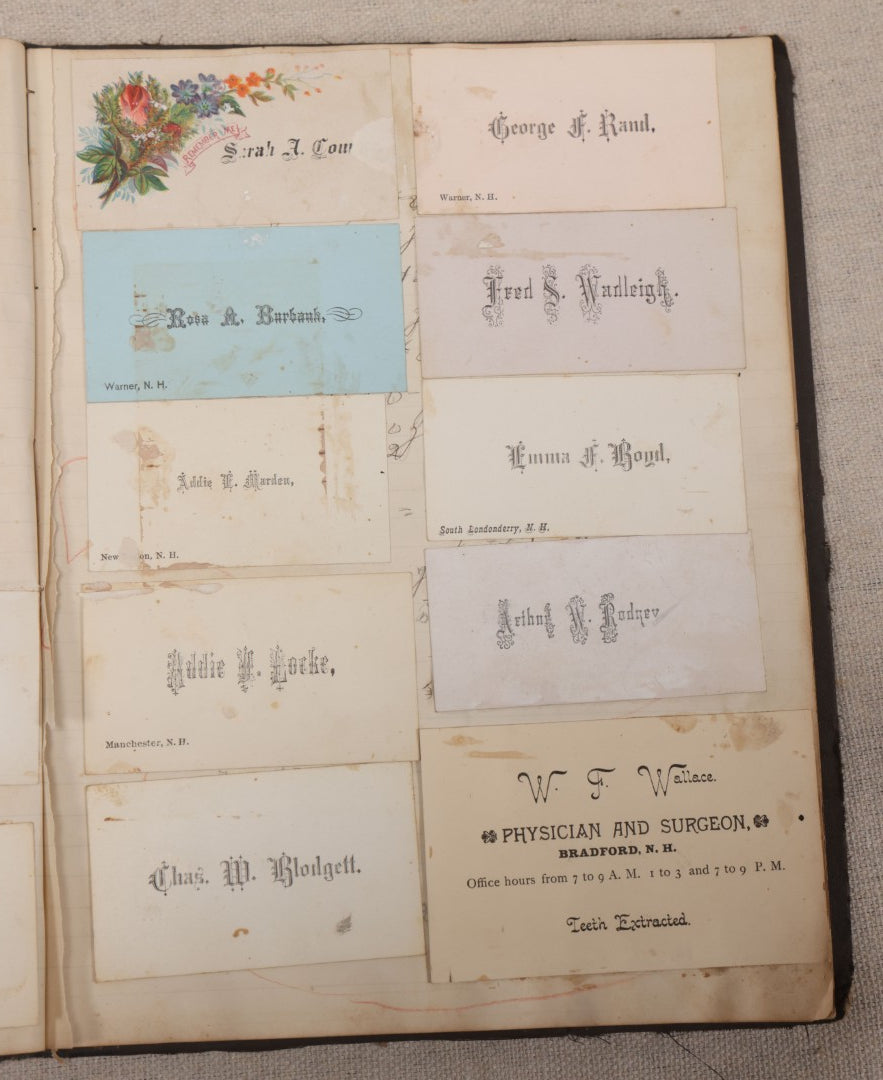 REMEMBER ME
Sarah A.
Rosa A. Burbank,
Warner, N. H.
Addie E. Marden,
New on, N. H.
Addie M. Locke,
Manchester, N. H.
Chas. W. Blodgett.
George F. Rand,
Warner, N. H.
Fred S. Wadleigh.
Emma F. Boyd,
South Londonderry, N. H.
Arthur W. Rodney
W. F. Wallace.
PHYSICIAN AND SURGEON,
BRADFORD, N. H.
Office hours from 7 to 9 A. M. 1 to 3 and 7 to 9 P. M.
Teeth Extracted.